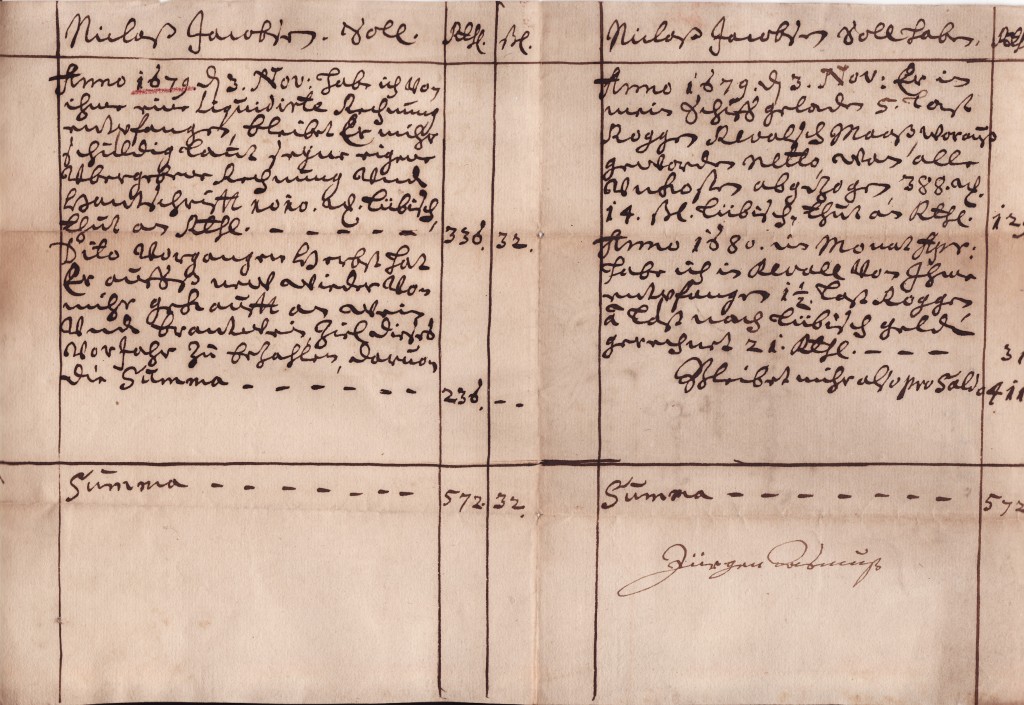 Niclaß Jacobsen. Soll. Rthl. ßl.
Anno 1679. d 3. Nov: habe ich von
ihme eine Liquidirte Rechnung
entpfangen, bleibet Er mihr
schuldig laut seyne eigene
Vbergebene Rechnung Vnd
Handtschrifft 1010. mk. Lübisch,
thut an Rthl. - - - - - 336. 32.
Dito Vorgangen Herbst hat
Er auffß new wieder von
mihr gekaufft an wein
Vnd brantwein, Ziel dieses
Vor Jahr zu bezahlen, daruon
die Summa - - - - - - 236. - -
Summa - - - - - - - 572. 32.
Niclaß Jacobsen Soll haben. Rth
Anno 1679. d 3. Nov: Er in
mein Schiff geladen 5. Last
Roggen Revalsch Maaß, worauß
geworden netto, wan alle
Vnkosten abgezogen 388. mk.
14. ßl. Lübisch, thut an Rthl. 12
Anno 1680. im Monat Apr:
habe ich in Revall Von Ihme
entpfangen 1½ Last Roggen
à Last nach Lübisch geld
gerechnet 21. Rthl. - - - - 31
Bleibet mihr also pro Saldo 411
Summa - - - - - - - - 572
Jürgen Rasmuß